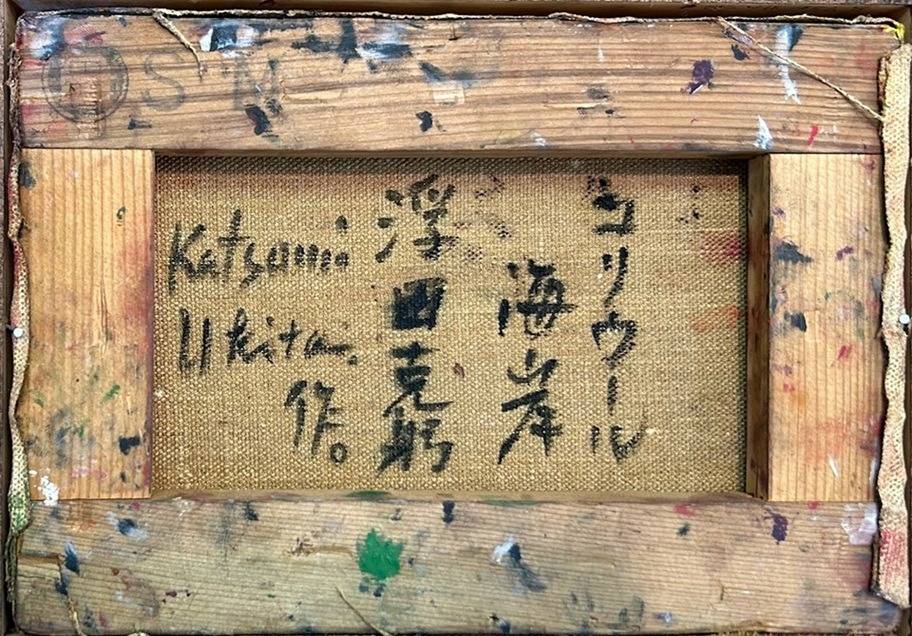 コリウール
海岸
浮田克躬
Katsumi
Ukita.
作。
SM